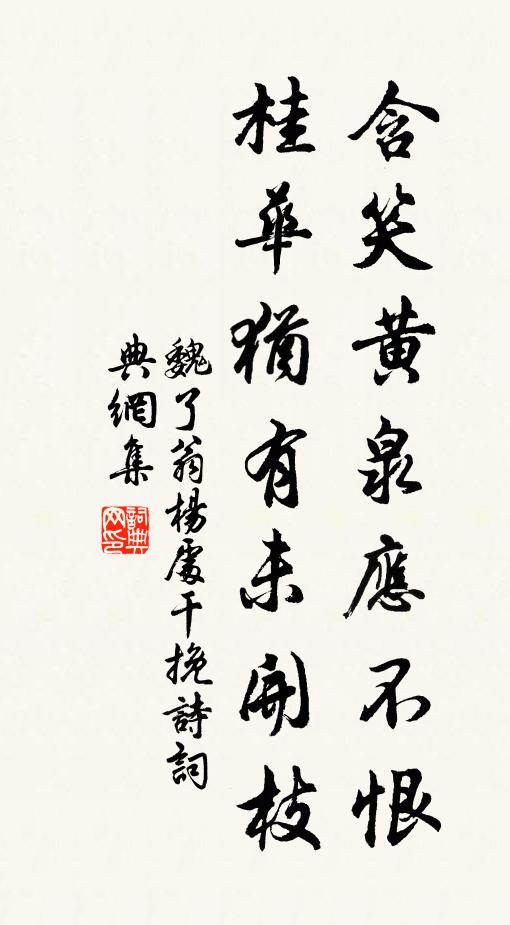 含笑黄泉應不恨
桂華猶有未開枝
魏了翁楊處干挽詩詞
典網集
詞典網印